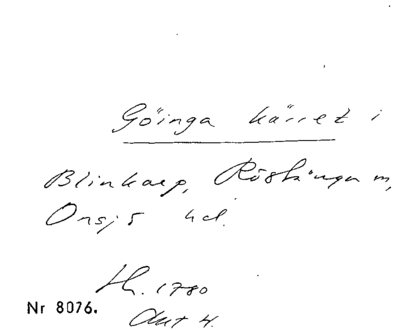 Göinga kärret i
Blinkarp, Röstånga m,
Onsjö hd.
Lh. 1780
Akt 4.
Nr 8076.